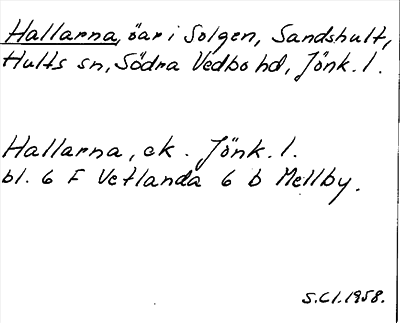 Hallarna, öar i Solgen, Sandshult,
Hults sn, Södra Vedbo hd, Jönk. l.
Hallarna, ek. Jönk. l.
bl. 6 F Vetlanda 6 b Mellby.
S.Cl. 1958.